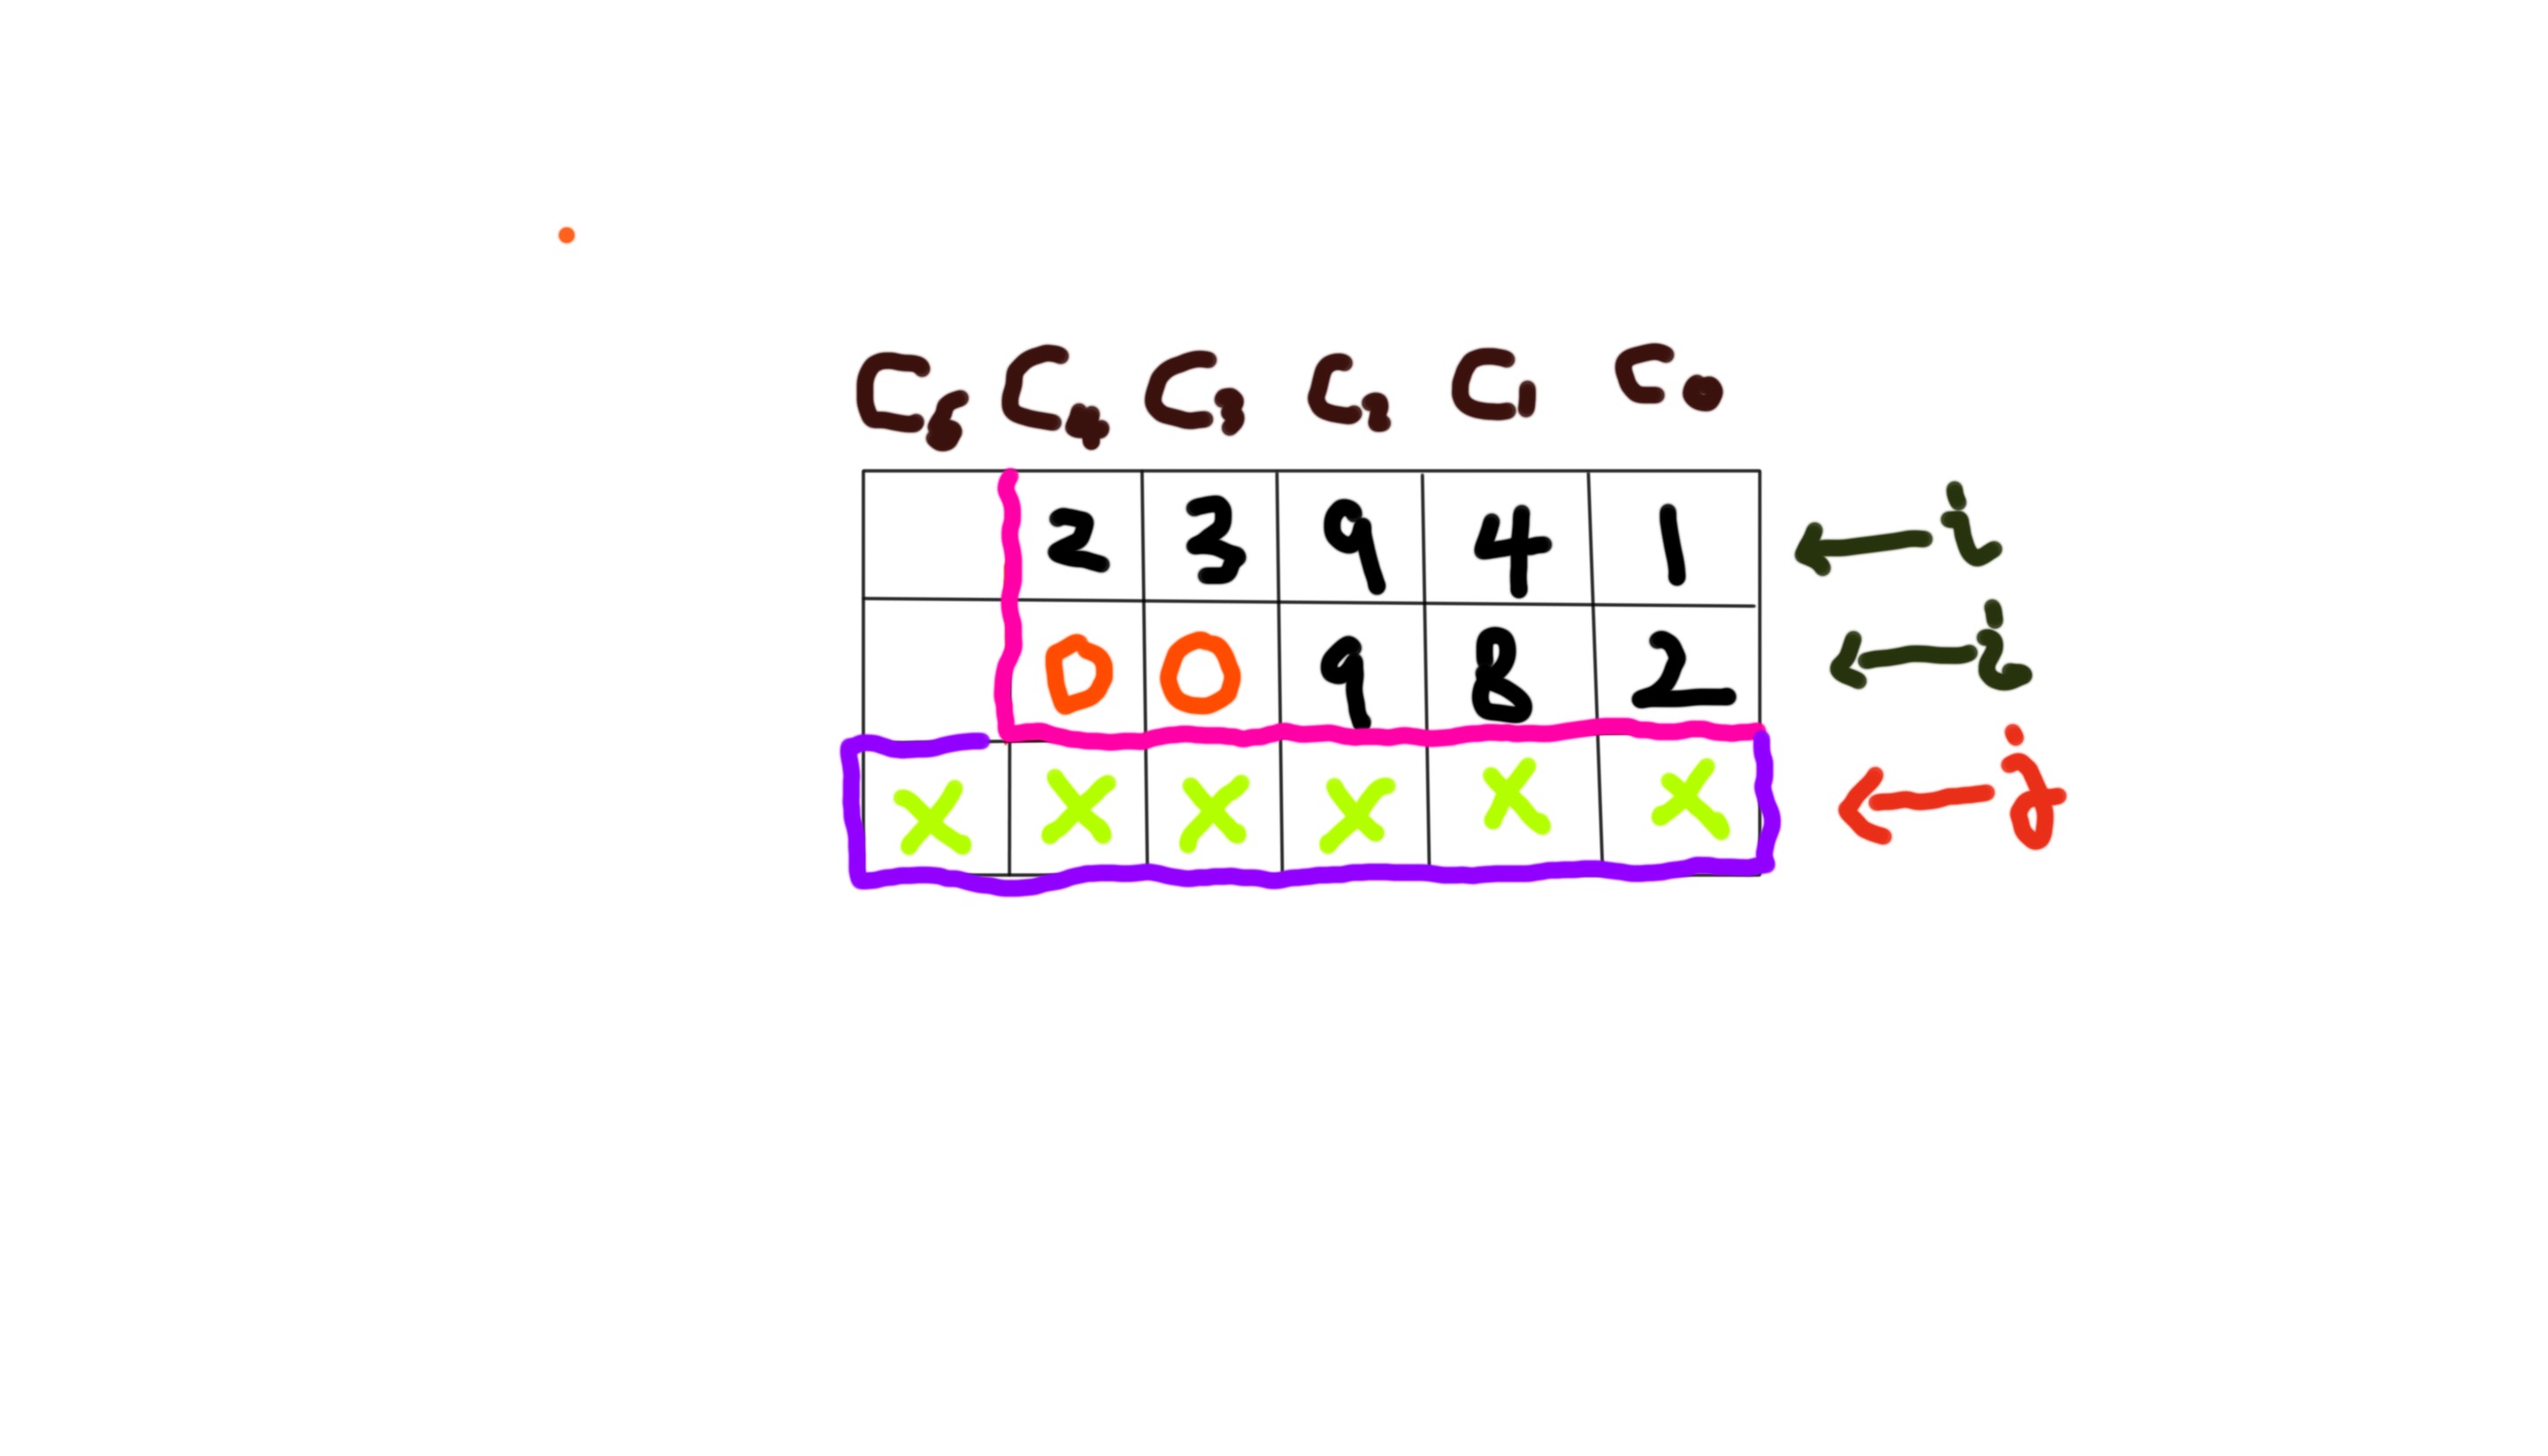 C5 C4 C3 C2 C1 C0
2 3 9 4 1 ← i
0 0 9 8 2 ← i
X X X X X X ← j